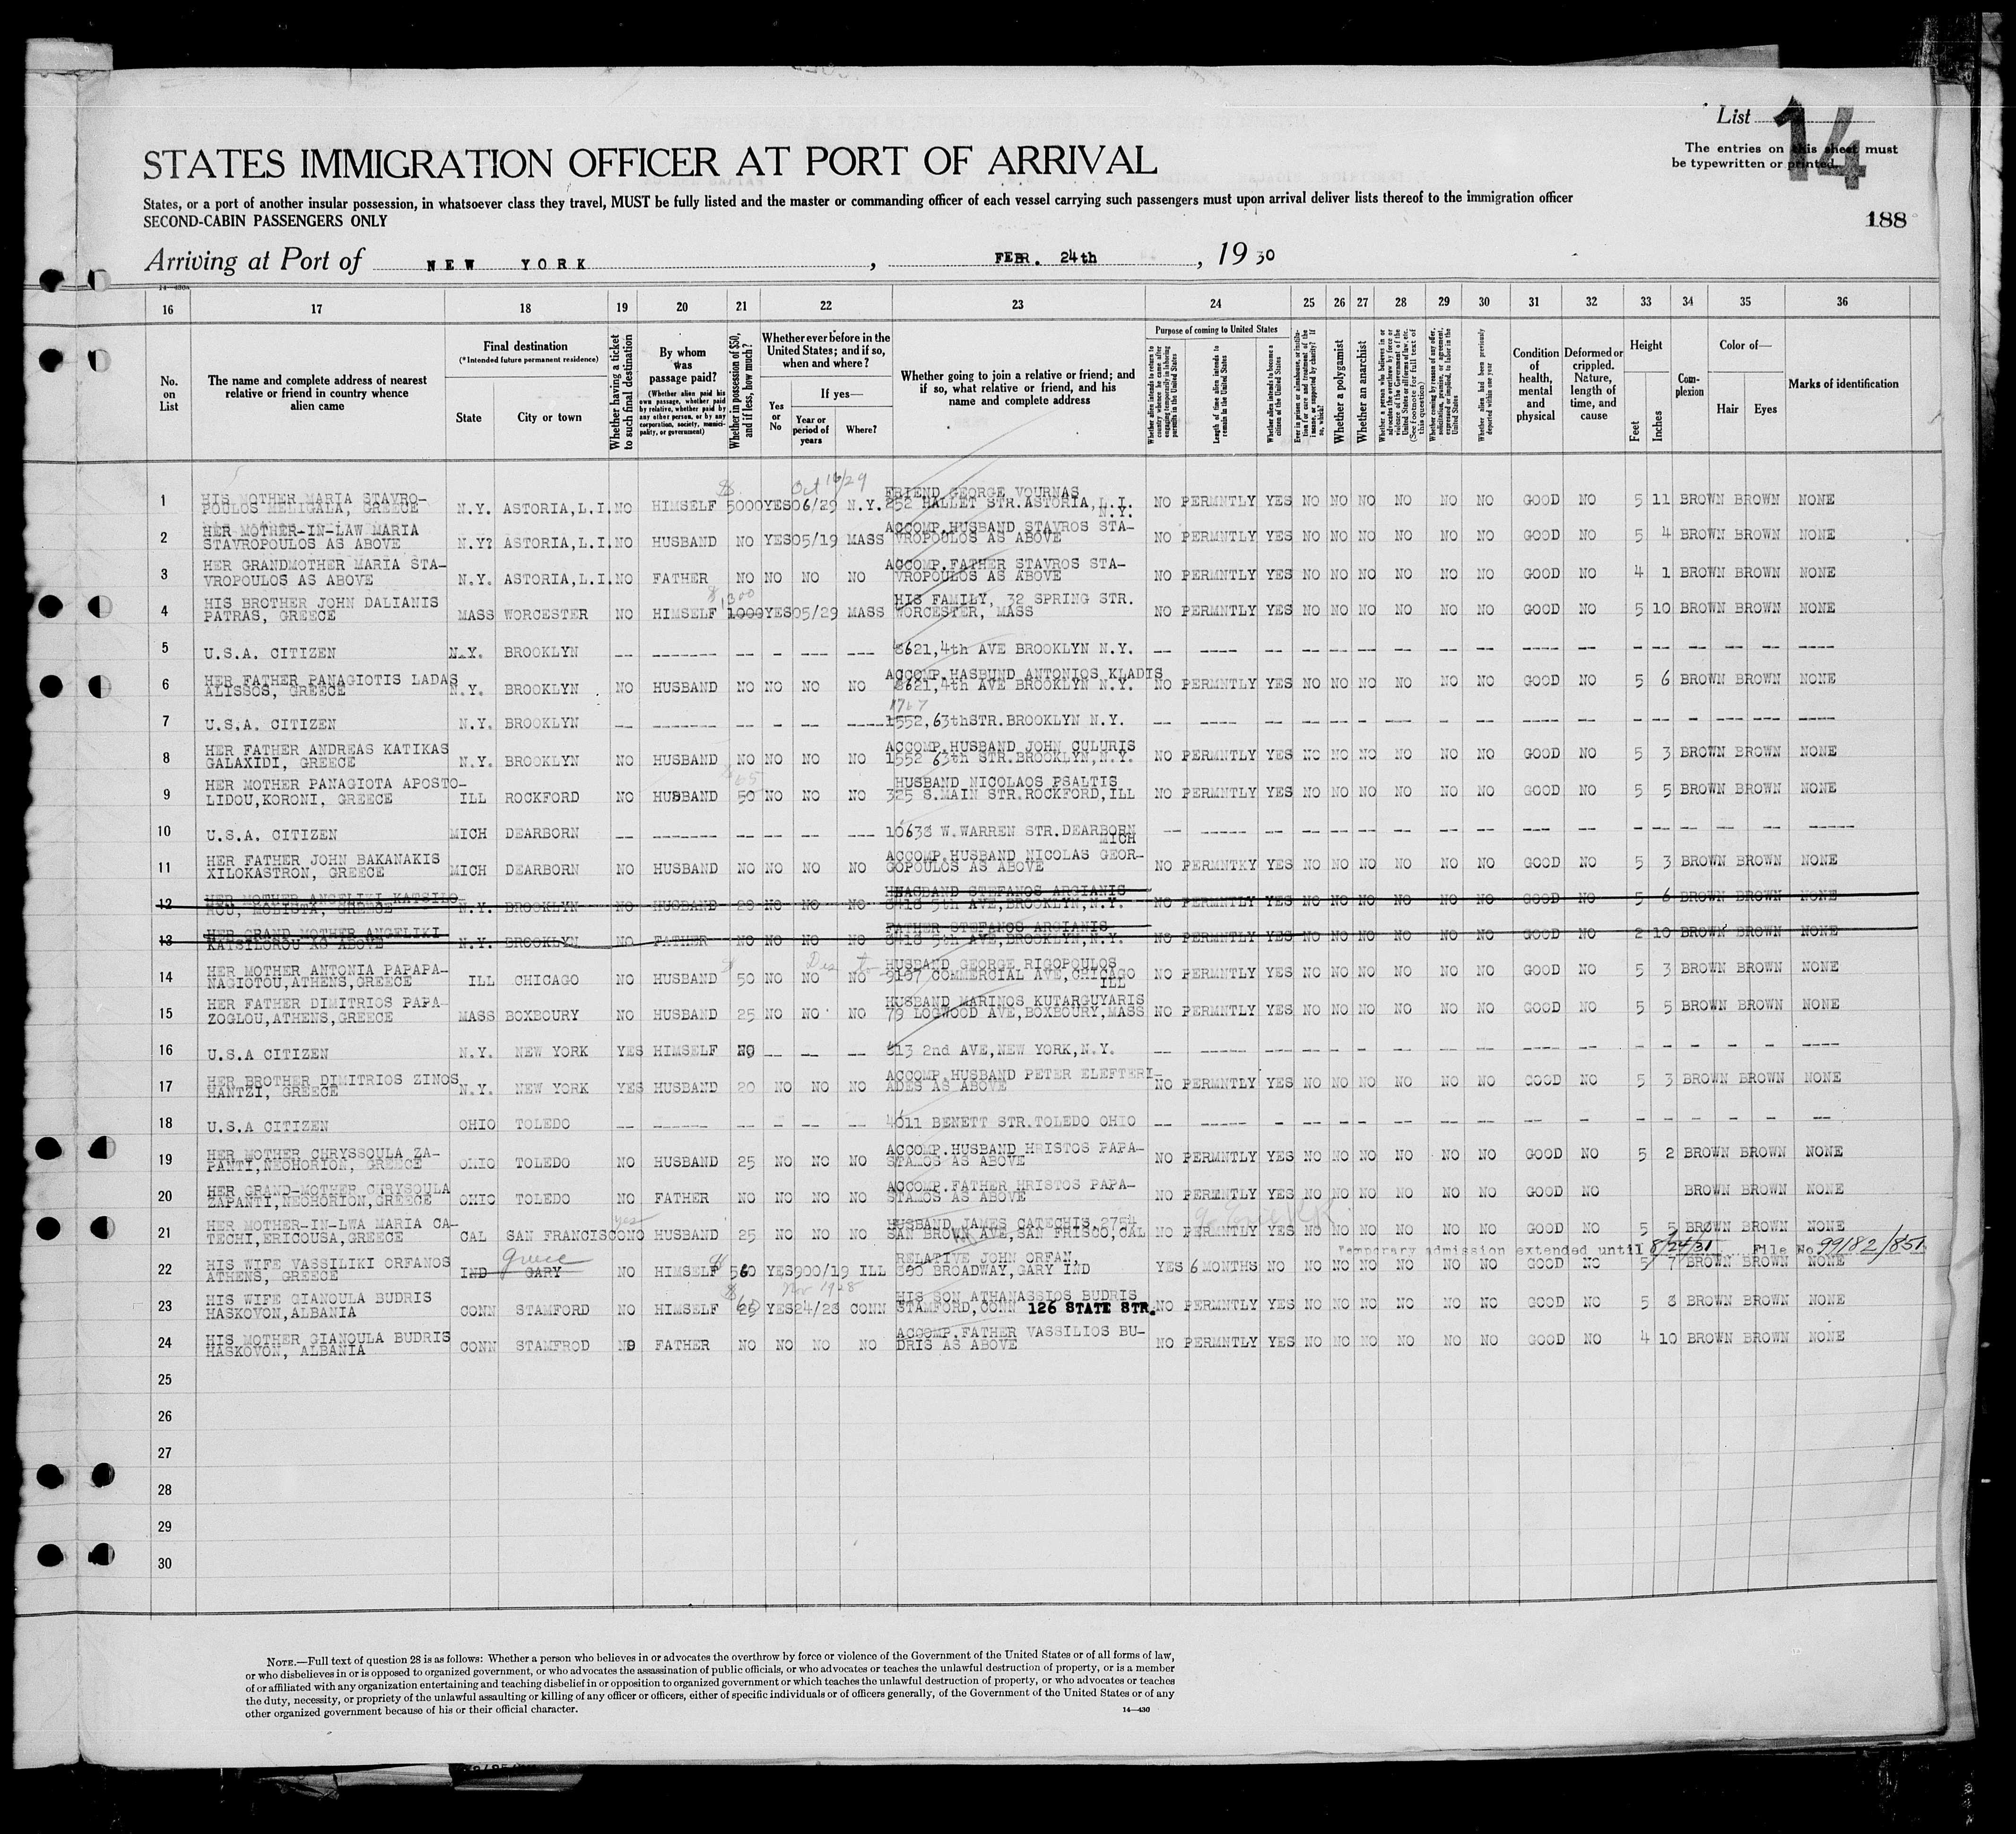 List 14
The entries on this sheet must
be typewritten or printed.
STATES IMMIGRATION OFFICER AT PORT OF ARRIVAL
States, or a port of another insular possession, in whatsoever class they travel, MUST be fully listed and the master or commanding officer of each vessel carrying such passengers must upon arrival deliver lists thereof to the immigration officer
SECOND-CABIN PASSENGERS ONLY
188
Arriving at Port of NEW YORK, FEBR. 24th, 1930
16 17 18 19 20 21 22 23 24 25 26 27 28 29 30 31 32 33 34 35 36
No. on List
The name and complete address of nearest relative or friend in country whence alien came
Final destination
(*Intended future permanent residence)
State City or town
Whether having a ticket to such final destination
By whom was passage paid?
(Whether alien paid his own passage, whether paid by relative, whether paid by any other person, or by any corporation, society, municipality, or government)
Whether in possession of $50, and if less, how much?
Whether ever before in the United States; and if so, when and where?
Yes or No
If yes—
Year or period of years Where?
Whether going to join a relative or friend; and if so, what relative or friend, and his name and complete address
Purpose of coming to United States
Length of time alien intends to remain in the United States
Whether alien intends to become a citizen of the United States
Whether a polygamist
Whether an anarchist
Condition of health, mental and physical
Deformed or crippled. Nature, length of time, and cause
Height
Feet Inches
Complexion
Color of—
Hair Eyes
Marks of identification
Oct 16/29
1 HIS MOTHER MARIA STAVRO-
POULOS MELIGALA, GREECE N.Y. ASTORIA,L.I. NO HIMSELF $ 5000 YES 06/29 N.Y. FRIEND GEORGE VOURNAS
252 HALLET STR.ASTORIA,L.I.
N.Y. NO PERMNTLY YES NO NO NO NO NO NO GOOD NO 5 11 BROWN BROWN NONE
2 HER MOTHER-IN-LAW MARIA
STAVROPOULOS AS ABOVE N.Y? ASTORIA,L.I. NO HUSBAND NO YES 05/19 MASS ACCOMP.HUSBAND STAVROS STA-
VROPOULOS AS ABOVE NO PERMNTLY YES NO NO NO NO NO NO GOOD NO 5 4 BROWN BROWN NONE
3 HER GRANDMOTHER MARIA STA-
VROPOULOS AS ABOVE N.Y. ASTORIA,L.I. NO FATHER NO NO NO NO ACCOMP.FATHER STAVROS STA-
VROPOULOS AS ABOVE NO PERMNTLY YES NO NO NO NO NO NO GOOD NO 4 1 BROWN BROWN NONE
4 HIS BROTHER JOHN DALIANIS
PATRAS, GREECE MASS WORCESTER NO HIMSELF $1300 1000 YES 05/29 MASS HIS FAMILY, 32 SPRING STR.
WORCESTER, MASS NO PERMNTLY YES NO NO NO NO NO NO GOOD NO 5 10 BROWN BROWN NONE
5 U.S.A. CITIZEN N.Y. BROOKLYN -- ------- -- - --- --- 8621,4th AVE BROOKLYN N.Y.
6 HER FATHER PANAGIOTIS LADAS
ALISSOS, GREECE N.Y. BROOKLYN NO HUSBAND NO NO NO NO ACCOMP.HASBUND ANTONIOS KLADIS
8621,4th AVE BROOKLYN N.Y. NO PERMNTLY YES NO NO NO NO NO NO GOOD NO 5 6 BROWN BROWN NONE
1767
7 U.S.A. CITIZEN N.Y. BROOKLYN -- ------- -- - -- ---- 1552,63thSTR.BROOKLYN N.Y.
8 HER FATHER ANDREAS KATIKAS
GALAXIDI, GREECE N.Y. BROOKLYN NO HUSBAND NO NO NO NO ACCOMP.HUSBAND JOHN CULURIS
1552 63th STR.BROOKLYN,N.Y. NO PERMNTLY YES NO NO NO NO NO NO GOOD NO 5 3 BROWN BROWN NONE
9 HER MOTHER PANAGIOTA APOSTO-
LIDOU,KORONI, GREECE ILL ROCKFORD NO HUSBAND 50 NO NO NO HUSBAND NICOLAOS PSALTIS
325 S.MAIN STR.ROCKFORD,ILL NO PERMNTLY YES NO NO NO NO NO NO GOOD NO 5 5 BROWN BROWN NONE
10 U.S.A. CITIZEN MICH DEARBORN -- ------- -- - -- --- 10638 W.WARREN STR.DEARBORN
MICH
11 HER FATHER JOHN BAKANAKIS
XILOKASTRON, GREECE MICH DEARBORN NO HUSBAND NO NO NO NO ACCOMP.HUSBAND NICOLAS GEOR-
GOPOULOS AS ABOVE NO PERMNTKY YES NO NO NO NO NO NO GOOD NO 5 3 BROWN BROWN NONE
12 HER MOTHER ANGELIKI KATSILO
GREECE N.Y. BROOKLYN NO HUSBAND 20 NO NO NO HUASBAND STEFANOS ARGIANIS
8418 5th AVE,BROOKLYN,N.Y. NO PERMNTLY YES NO NO NO NO NO NO GOOD NO 5 6 BROWN BROWN NONE
13 HER GRAND MOTHER ANGELIKI
KATSILOROU AS ABOVE N.Y. BROOKLYN NO FATHER NO NO NO NO FATHER STEFANOS ARGIANIS
8418 5th AVE,BROOKLYN,N.Y. NO PERMNTLY YES NO NO NO NO NO NO GOOD NO 2 10 BROWN BROWN NONE
14 HER MOTHER ANTONIA PAPAPA-
NAGIOTOU,ATHENS,GREECE ILL CHICAGO NO HUSBAND 50 NO NO NO HUSBAND GEORGE RIGOPOULOS
9197 COMMERCIAL AVE,CHICAGO
ILL NO PERMNTLY YES NO NO NO NO NO NO GOOD NO 5 3 BROWN BROWN NONE
15 HER FATHER DIMITRIOS PAPA-
ZOGLOU,ATHENS,GREECE MASS BOXBOURY NO HUSBAND 25 NO NO NO HUSBAND MARINOS KUTARGUYARIS
79 LOGWOOD AVE,BOXBOURY,MASS NO PERMNTLY YES NO NO NO NO NO NO GOOD NO 5 5 BROWN BROWN NONE
16 U.S.A CITIZEN N.Y. NEW YORK YES HIMSELF NO -- -- -- 813 2nd AVE,NEW YORK,N.Y.
17 HER BROTHER DIMITRIOS ZINOS
HANTZI, GREECE N.Y. NEW YORK YES HUSBAND 20 NO NO NO ACCOMP.HUSBAND PETER ELEFTERI-
ADES AS ABOVE NO PERMNTLY YES NO NO NO NO NO NO GOOD NO 5 3 BROWN BROWN NONE
18 U.S.A CITIZEN OHIO TOLEDO -- ------ -- - -- -- 4011 BENETT STR.TOLEDO OHIO
19 HER MOTHER CHRYSSOULA ZA-
PANTI,NEOHORION, GREECE OHIO TOLEDO NO HUSBAND 25 NO NO NO ACCOMP.HUSBAND HRISTOS PAPA-
STAMOS AS ABOVE NO PERMNTLY YES NO NO NO NO NO NO GOOD NO 5 2 BROWN BROWN NONE
20 HER GRAND-MOTHER CHRYSOULA
ZAPANTI,NEOHORION,GREECE OHIO TOLEDO NO FATHER NO NO NO NO ACCOMP.FATHER HRISTOS PAPA-
STAMOS AS ABOVE NO PERMNTLY YES NO NO NO NO NO NO GOOD NO BROWN BROWN NONE
yes
21 HER MOTHER-IN-LWA MARIA CA-
TECHI,ERICOUSA,GREECE CAL SAN FRANCISCO NO HUSBAND 25 NO NO NO HUSBAND JAMES CATECHIS,2754
SAN BROWN AVE,SAN FRISCO,CAL NO PERMNTLY YES NO NO NO NO NO NO GOOD NO 5 5 BROWN BROWN NONE
Temporary admission extended until 8/24/31 File No. 99182/851
Greece
22 HIS WIFE VASSILIKI ORFANOS
ATHENS, GREECE IND GARY NO HIMSELF $ 560 YES 900/19 ILL RELATIVE JOHN ORFAN,
800 BROADWAY,GARY IND YES 6 MONTHS NO NO NO NO NO NO NO GOOD NO 5 7 BROWN BROWN NONE
Nov 1928
23 HIS WIFE GIANOULA BUDRIS
HASKOVON,ALBANIA CONN STAMFORD NO HIMSELF $ 60 25 YES 24/28 CONN HIS SON ATHANASSIOS BUDRIS
STAMFORD,CONN 126 STATE STR. NO PERMNTLY YES NO NO NO NO NO NO GOOD NO 5 8 BROWN BROWN NONE
24 HIS MOTHER GIANOULA BUDRIS
HASKOVON, ALBANIA CONN STAMFROD NO FATHER NO NO NO NO ACCOMP.FATHER VASSILIOS BU-
DRIS AS ABOVE NO PERMNTLY YES NO NO NO NO NO NO GOOD NO 4 10 BROWN BROWN NONE
25
26
27
28
29
30
NOTE.—Full text of question 28 is as follows: Whether a person who believes in or advocates the overthrow by force or violence of the Government of the United States or of all forms of law,
or who disbelieves in or is opposed to organized government, or who advocates the assassination of public officials, or who advocates or teaches the unlawful destruction of property, or is a member
of or affiliated with any organization entertaining and teaching disbelief in or opposition to organized government or which teaches the unlawful destruction of property, or who advocates or teaches
the duty, necessity, or propriety of the unlawful assaulting or killing of any officer or officers, either of specific individuals or of officers generally, of the Government of the United States or of any
other organized government because of his or their official character.
14—430